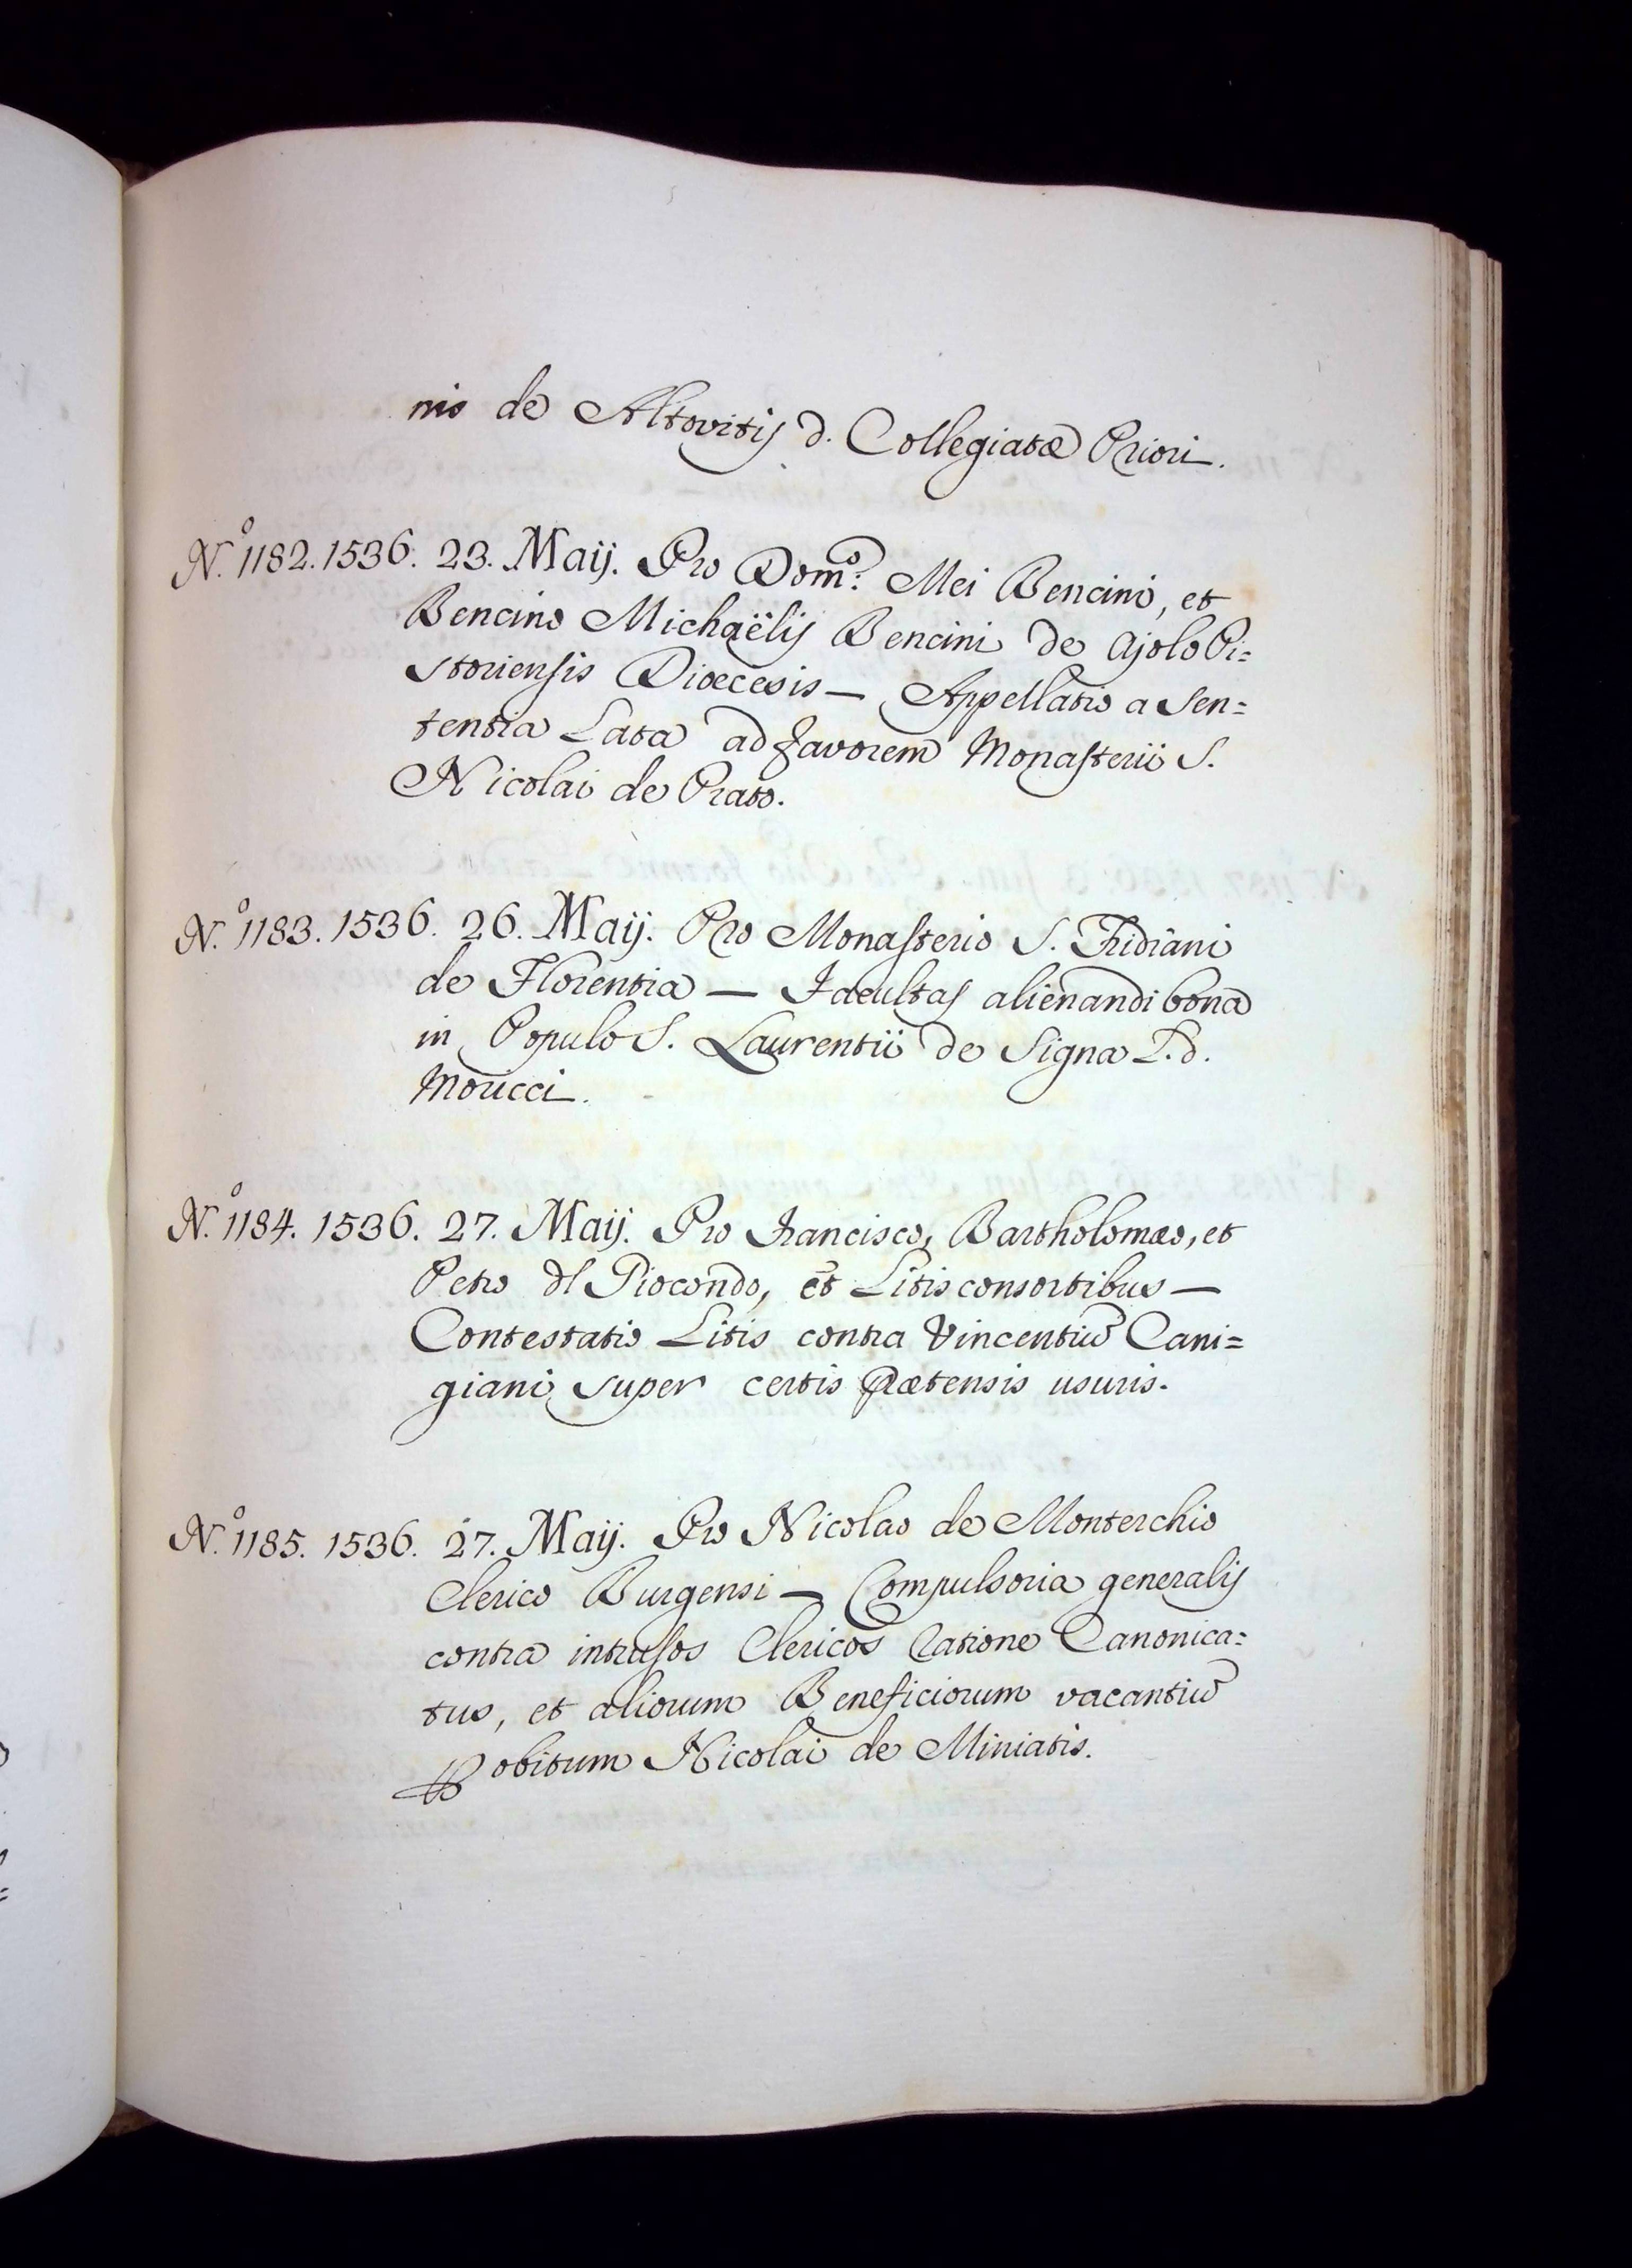 nis de Altovitis d. Collegiatæ Priori.
N.º 1182. 1536. 23. Maij. Pro Domº: Mei Bencini, et
Bencino Michaëlis Bencini de Ajolo Pi=
storiensis Dioecesis — Appellatio a Sen=
tentia Lata ad favorem Monasterii S.
Nicolai de Prato.
N.º 1183. 1536. 26. Maij. Pro Monasterio S. Fridiani
de Florentia — Facultas alienandi bona
in Populo S. Laurentii de Signa L. d.
Moricci.
N.º 1184. 1536. 27. Maij. Pro Francisco, Bartholomæo, et
Petro dl Giocondo, et Litis consortibus —
Contestatio Litis contra Vincentiũ Cani=
giani super certis Prætensis usuris.
N.º 1185. 1536. 27. Maij. Pro Nicolao de Monterchio
Clerico Burgensi — Compulsoria generalis
contra intrusos Clericos Ratione Canonica=
tus, et aliorum Beneficiorum vacantiũ
obitum Nicolai de Miniatis.